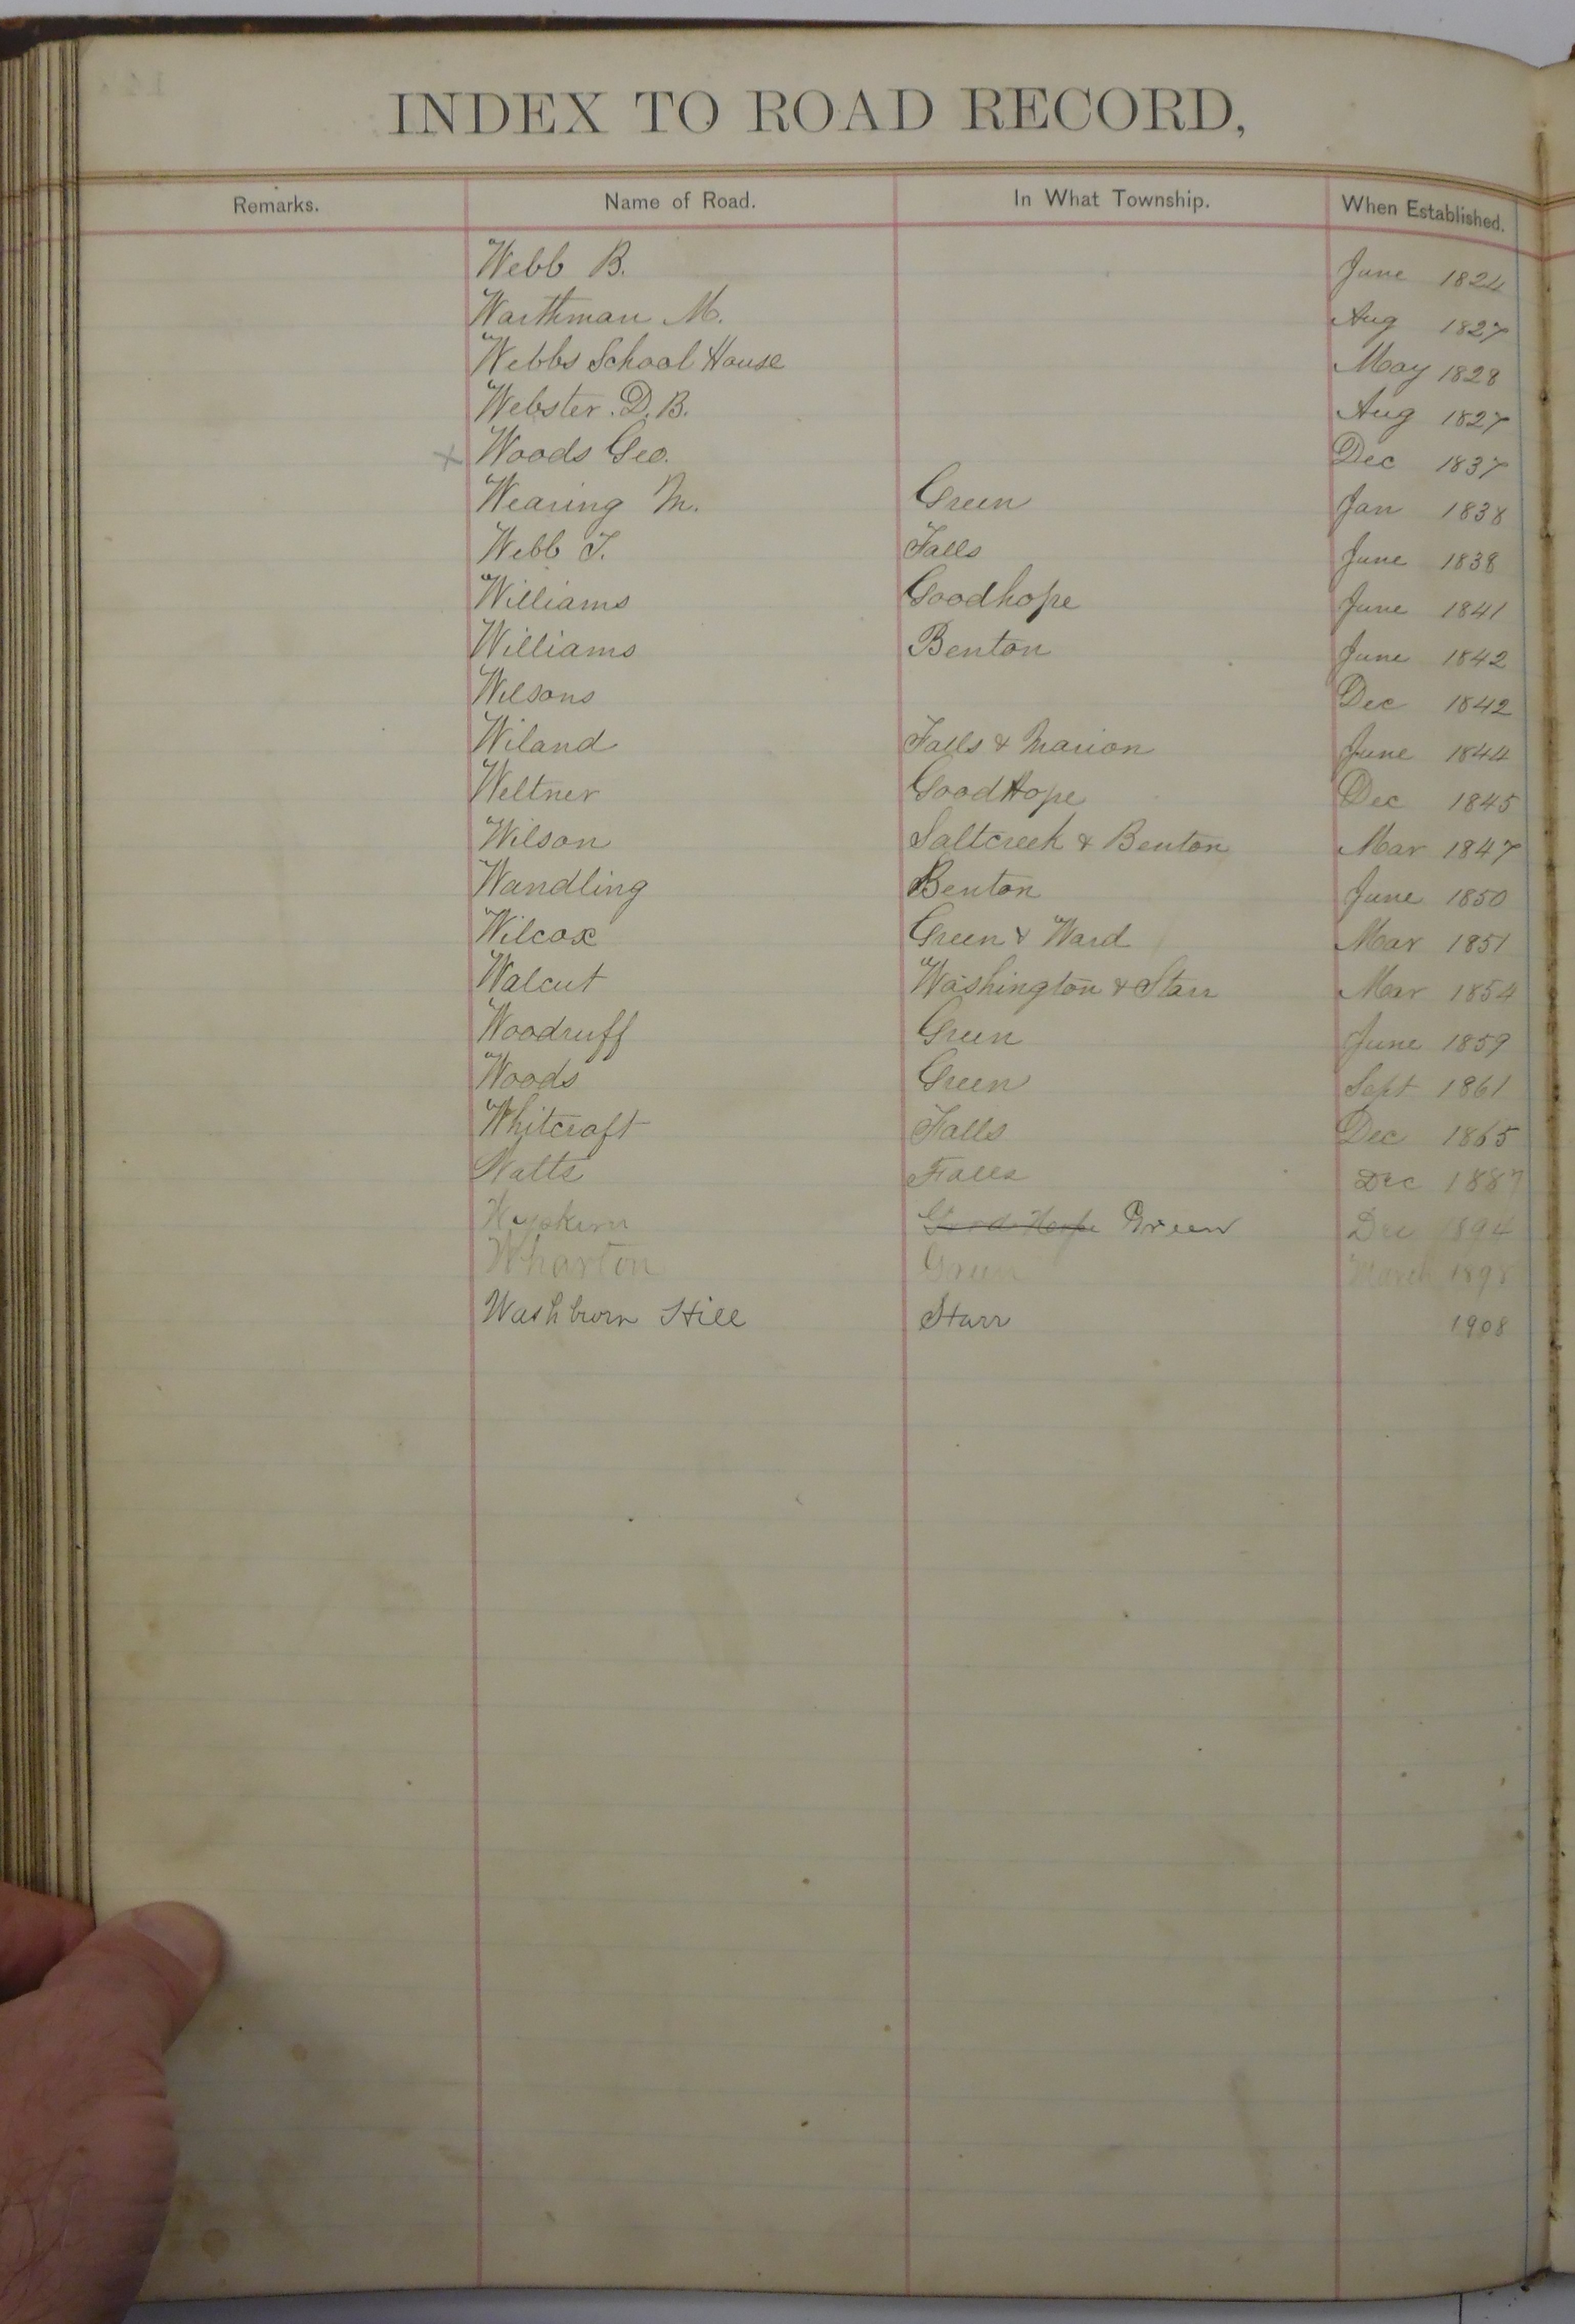 INDEX TO ROAD RECORD,
Remarks. Name of Road. In What Township. When Established.
Webb B. June 1824
Warthman M. Aug 1827
Webbs School House May 1828
Webster. D. B. Aug 1827
x Woods Geo. Dec 1837
Wearing M. Green Jan 1838
Webb T. Falls June 1838
Williams Goodhope June 1841
Williams Benton June 1842
Wilsons Dec 1842
Wiland Falls & Marion June 1844
Weltner Good Hope Dec 1845
Wilson Saltcreek & Benton Mar 1847
Wandling Benton June 1850
Wilcox Green & Ward Mar 1851
Walcut Washington & Starr Mar 1854
Woodruff Green June 1859
Woods Green Sept 1861
Whitcraft Falls Dec 1865
Watts Falls Dec 1887
Good Hope Green Dec 1894
Wharton Green March 1898
Washburn Hill Starr 1908